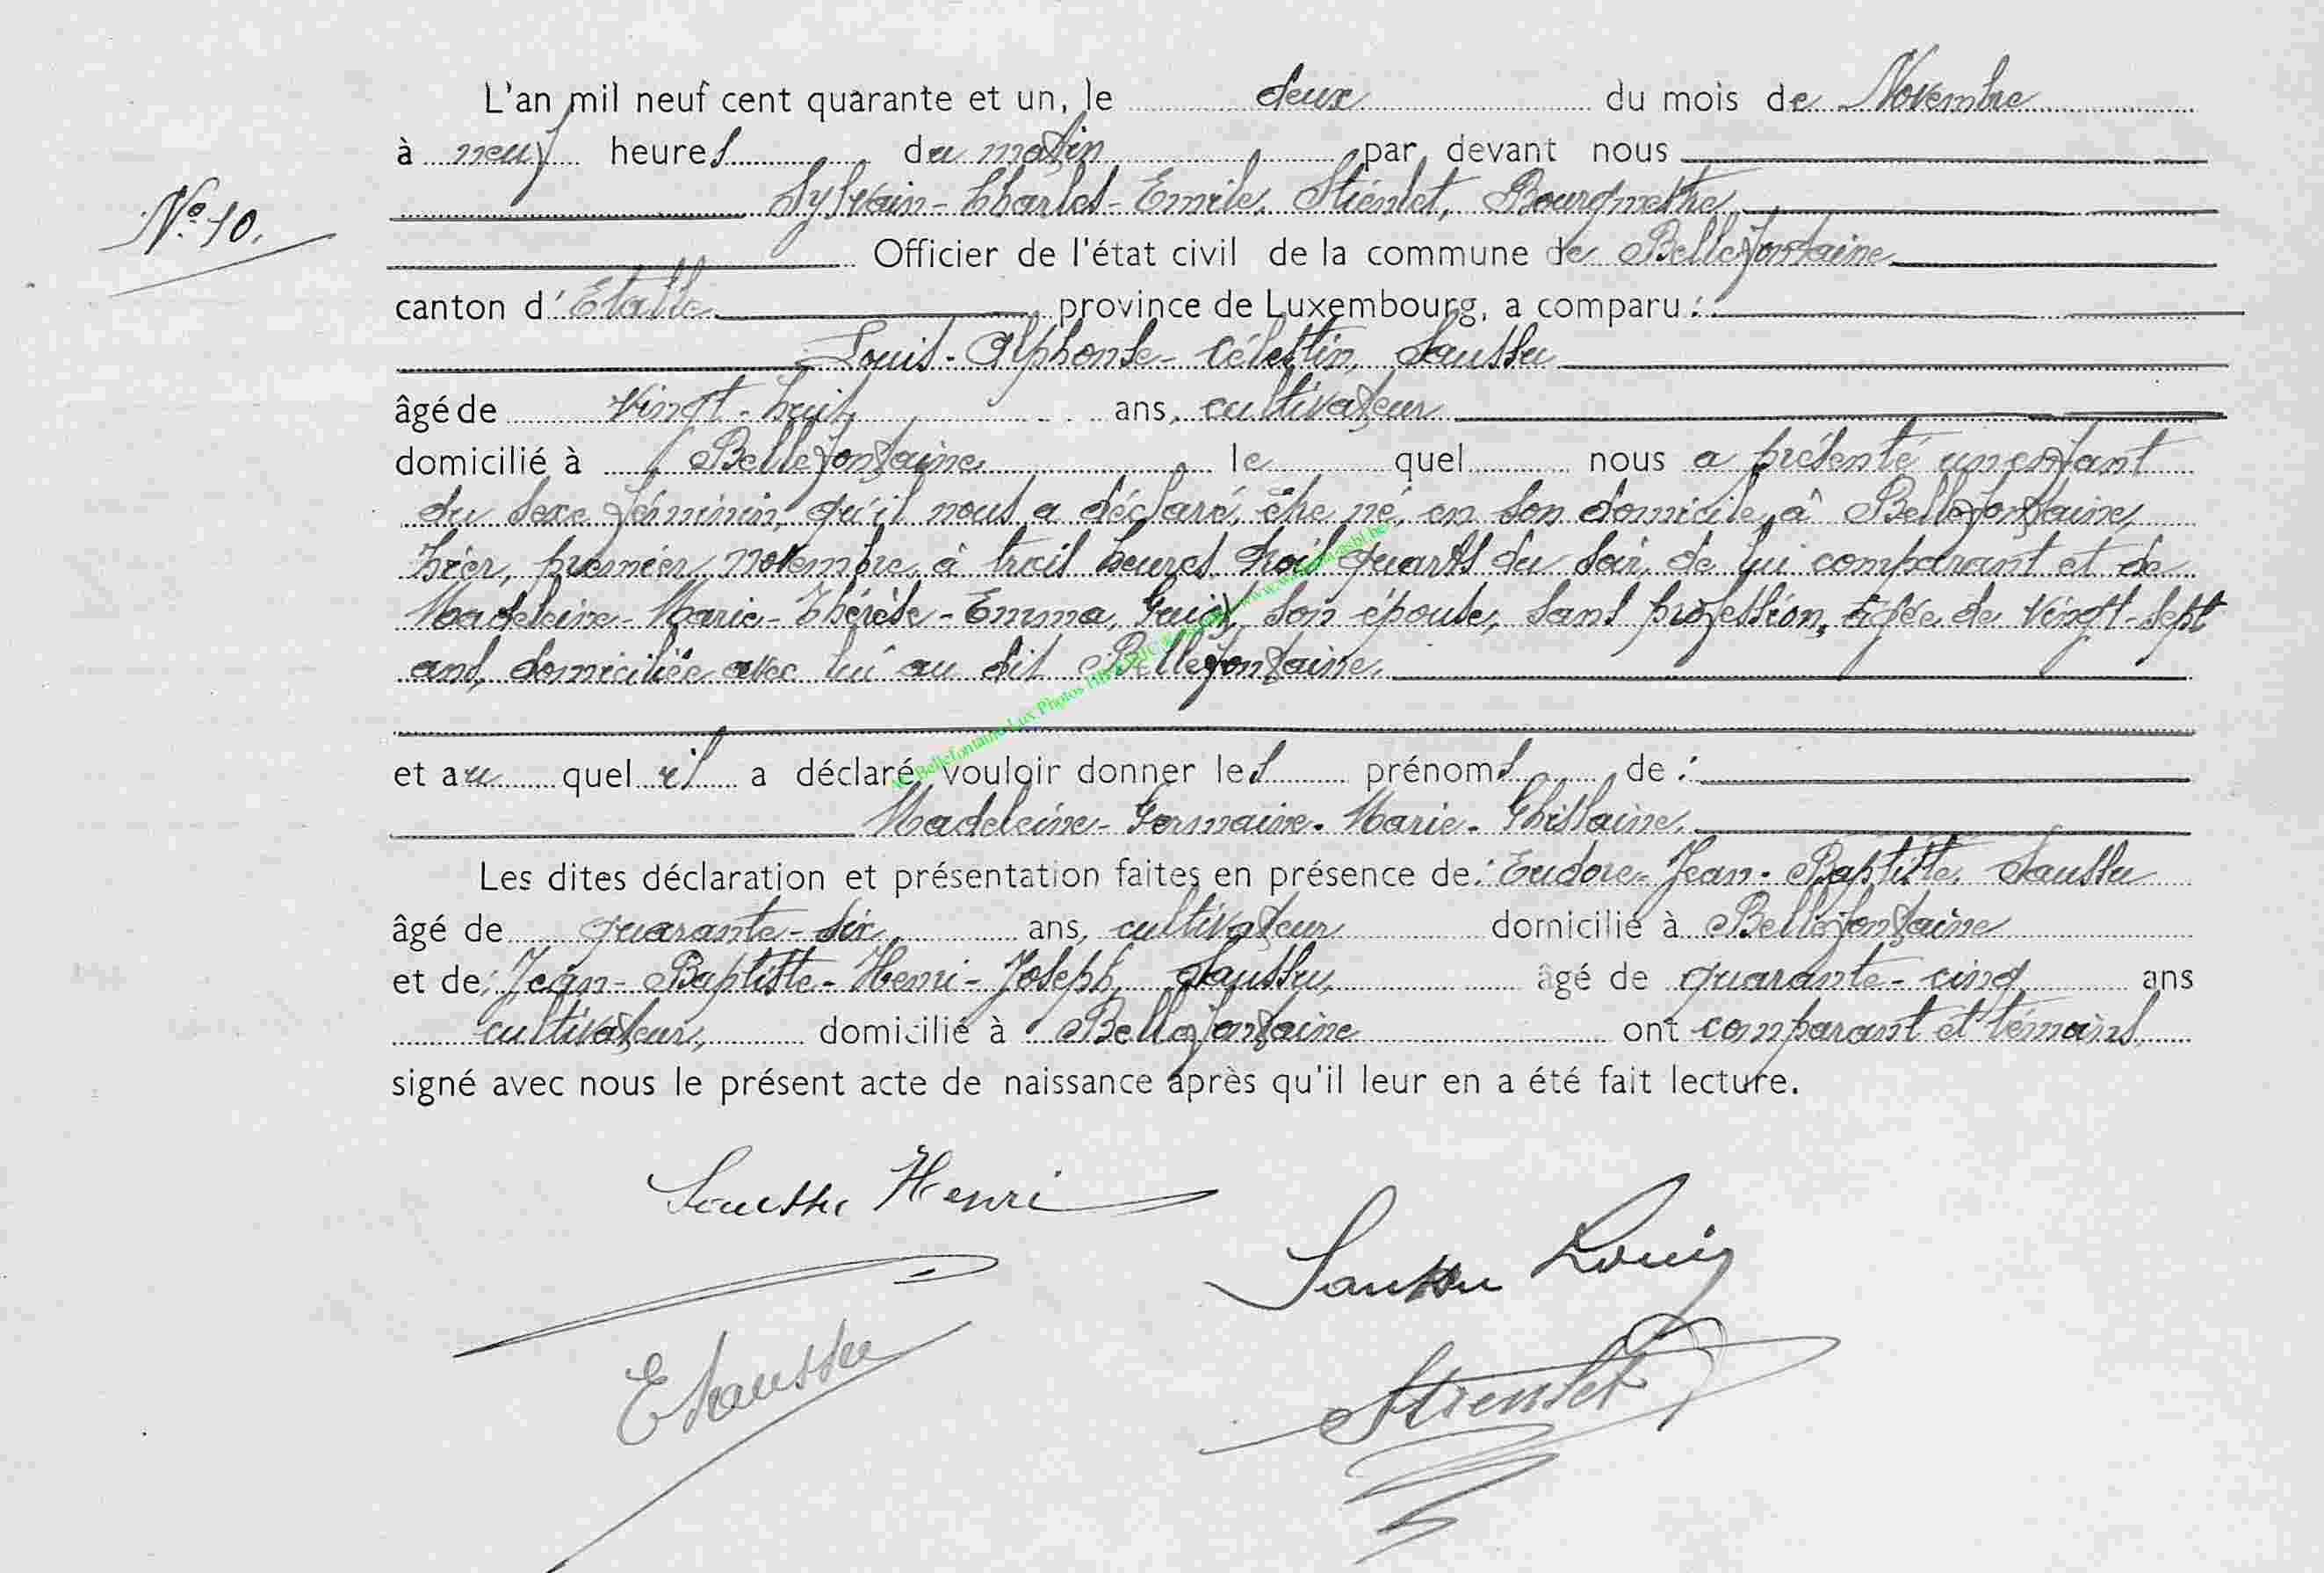 L'an mil neuf cent quarante et un, le deux du mois de Novembre
à neuf heures du matin par devant nous
Sylvain-Charles-Emile, Stiénlet, Bourgmestre
N° 10.
Officier de l'état civil de la commune de Bellefontaine
canton d'Etalle province de Luxembourg, a comparu :
Louis-Alphonse-Célestin, Saussu
âgé de vingt-huit ans, cultivateur
domicilié à Bellefontaine le quel nous a présenté un enfant
du sexe féminin, qu'il nous a déclaré, être né, en son domicile, à Bellefontaine,
hier, premier novembre, à trois heures trois quarts du soir, de lui comparant et de
Madeleine-Marie-Thérèse-Emma, son épouse, sans profession, âgée de vingt-sept
ans, domiciliée avec lui au dit Bellefontaine.
et au quel il a déclaré vouloir donner les prénoms de :
Madeleine-Germaine-Marie-Ghislaine.
Les dites déclaration et présentation faites en présence de : Eudore-Jean-Baptiste, Saussu
âgé de quarante-six ans, cultivateur domicilié à Bellefontaine
et de : Jean-Baptiste-Henri-Joseph, Saussu, âgé de quarante-cinq ans
cultivateur, domicilié à Bellefontaine ont comparant et témoins,
signé avec nous le présent acte de naissance après qu'il leur en a été fait lecture.
Saussu Henri
Saussu Louis
E Saussu
Stienlet